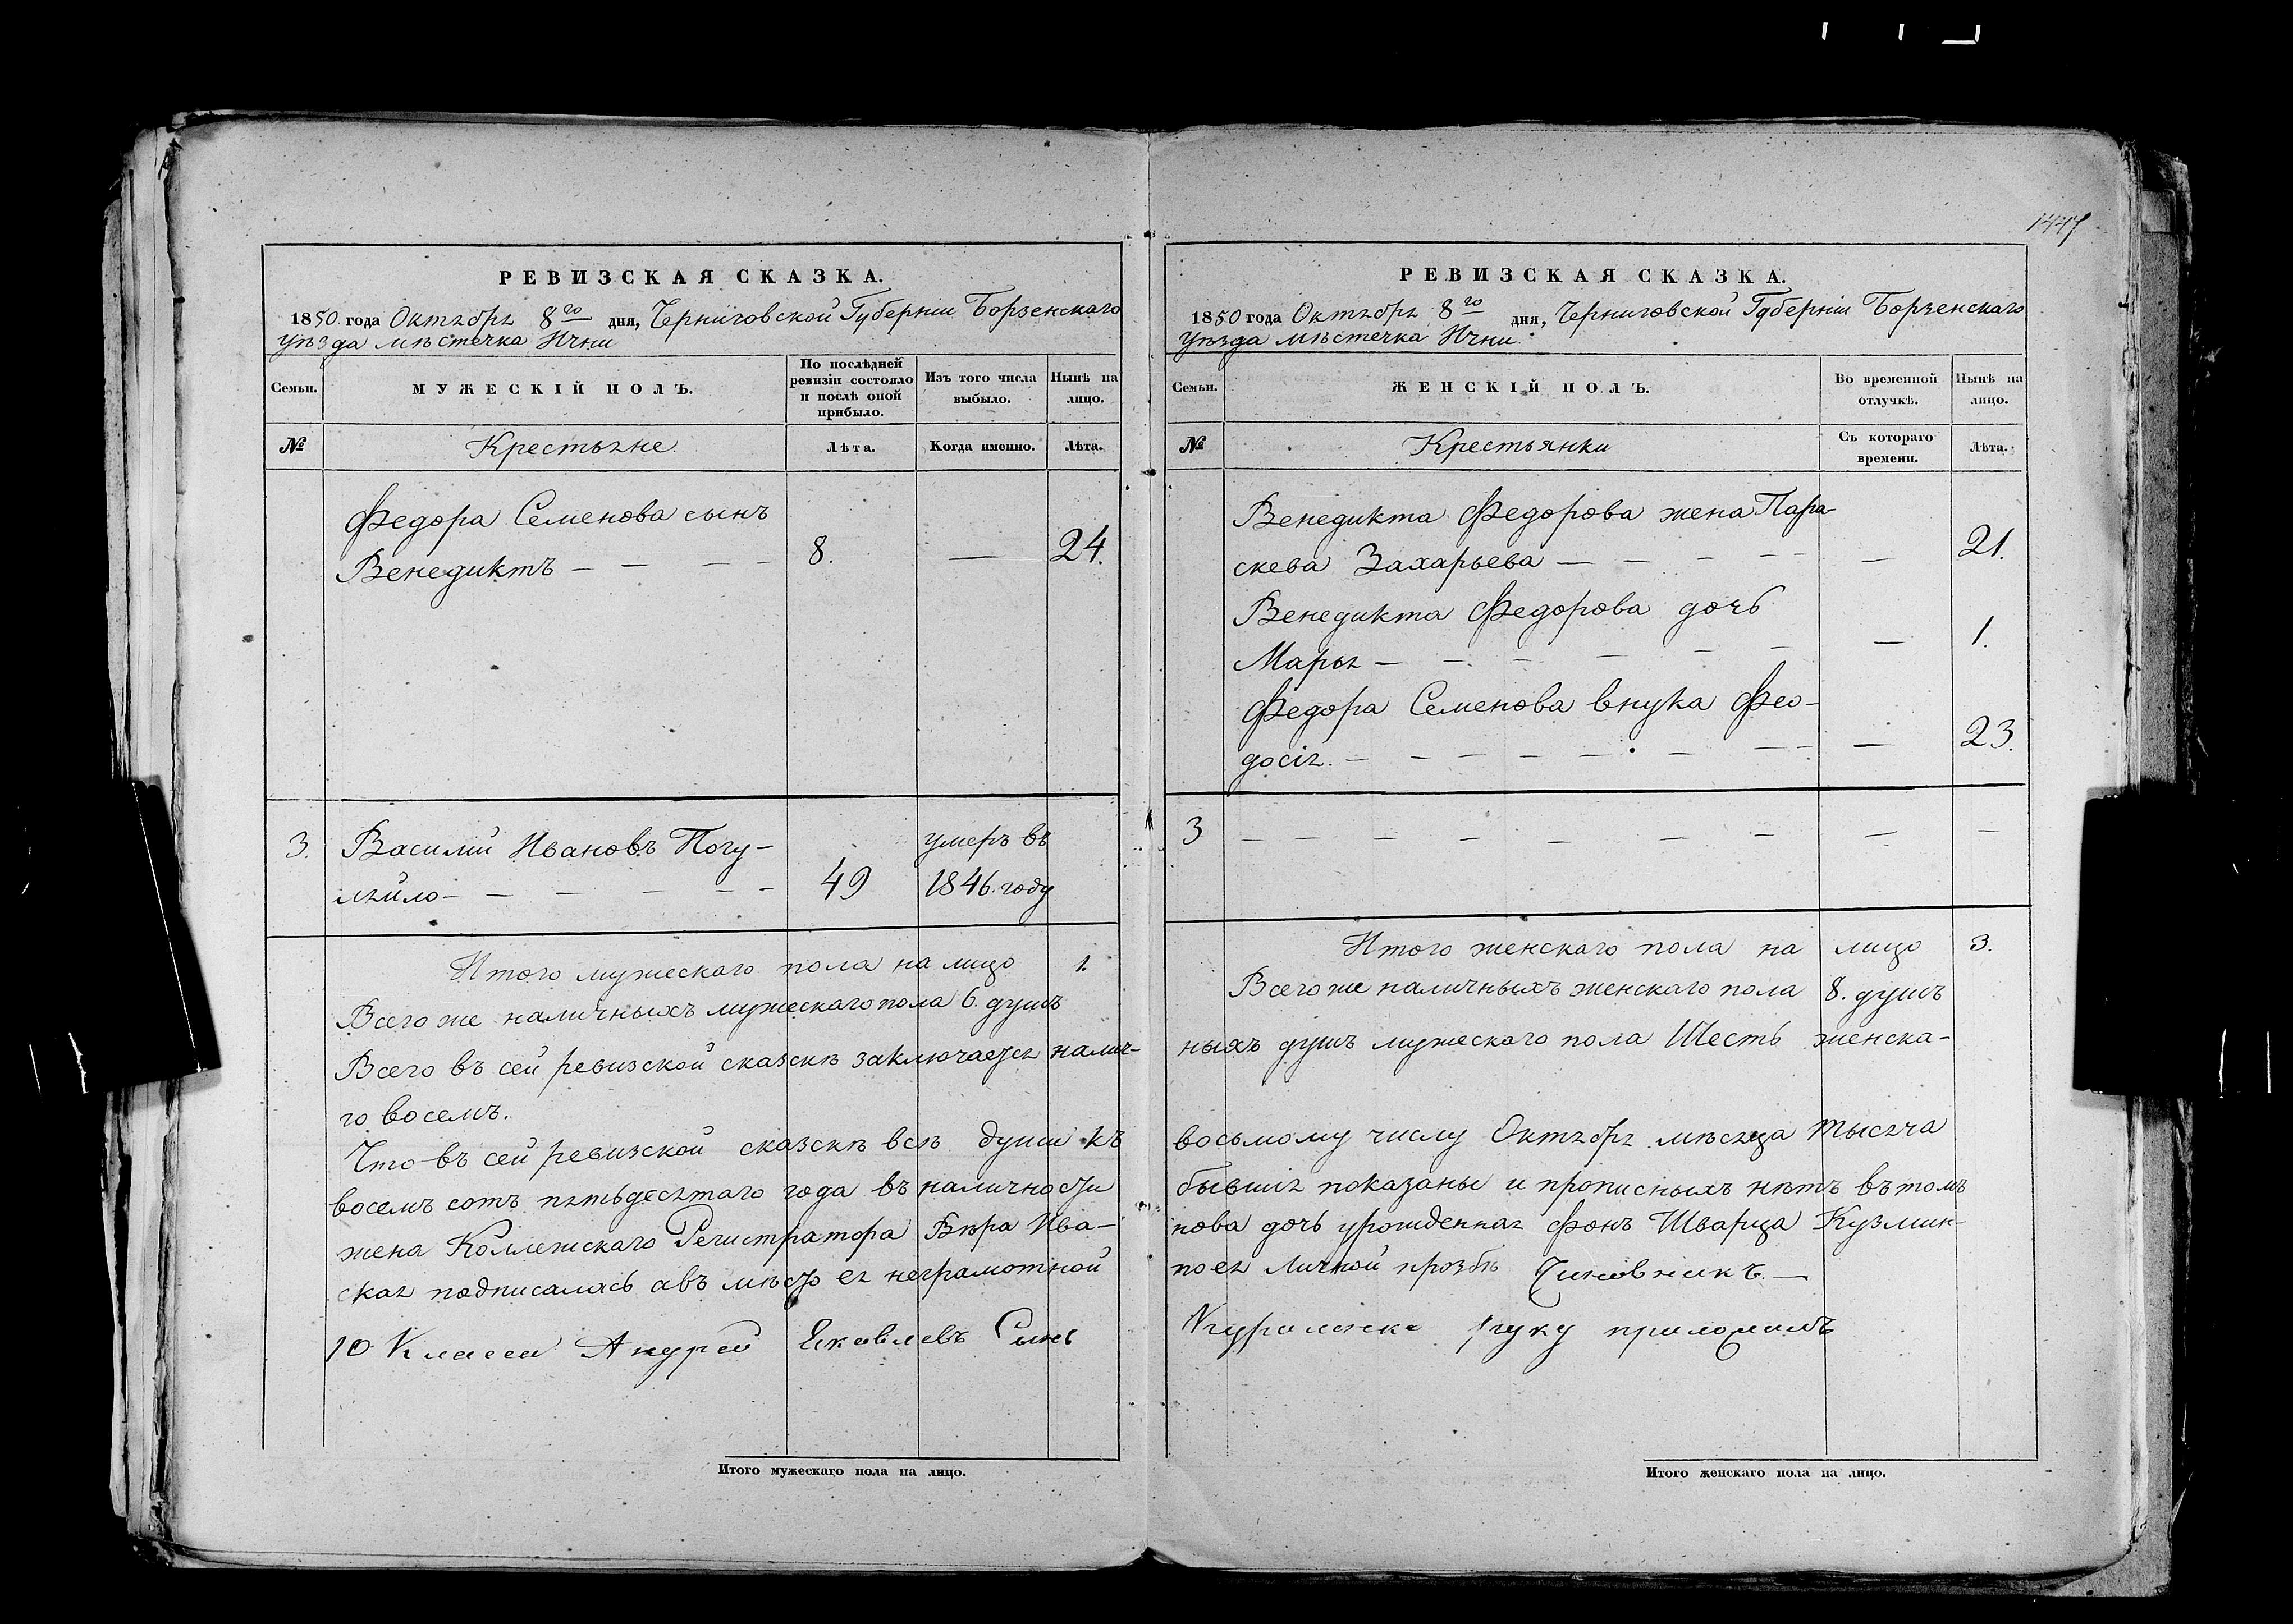 1447
РЕВИЗСКАЯ СКАЗКА.
1850. года Октября 8го дня, Черниговской Губерніи Борзенскаго
уѣзда мѣстечка Ични
Семьи.
МУЖЕСКІЙ ПОЛЪ.
По послѣдней ревизіи состояло и послѣ оной прибыло.
Изъ того числа выбыло.
Нынѣ на лицо.
№
Крестьяне
Лѣта.
Когда именно.
Лѣта.
Федора Семенова сынъ
Венедиктъ — — — — 8. — 24.
3. Василій Ивановъ Погу- умеръ въ
ляйло — — — — — 49 1846. году
Итого мужескаго пола на лицо 1.
Всего же наличныхъ мужескаго пола 6. душъ
Всего въ сей ревизской сказскѣ заключается налич-
го восемъ.
Что въ сей ревизской сказскѣ всѣ души къ
восемъ сотъ пятьдесятаго года въ наличности
жена Коллежскаго Регистратора Вѣра Ива-
ская подписалась а въ мѣсто ея неграмотной
10 Класса Андрей Яковлевъ Сынъ
Итого мужескаго пола на лицо.
РЕВИЗСКАЯ СКАЗКА.
1850 года Октября 8го дня, Черниговской Губерніи Борзенскаго
Уѣзда мѣстечка Ични.
Семьи.
ЖЕНСКІЙ ПОЛЪ.
Во временной отлучкѣ.
Нынѣ на лицо.
№
Крестьянки
Съ котораго времени.
Лѣта.
Венедикта Федорова жена Пара-
скева Захарьева — — — — — — 21.
Венедикта Федорова дочь
Марья — — — — — — — 1.
Федора Семенова внука Фео-
досія. — — — — — — — — 23.
3 — — — — — — — — —
Итого женскаго пола на лицо 3.
Всего же наличныхъ женскаго пола 8. душъ
ныхъ душъ мужескаго пола Шесть женска-
восьмому числу Октября мѣсяца тысяча
бывшія показаны и прописныхъ нѣтъ въ томъ
нова дочь урожденная фонъ Шварца Кузмин-
по ея личной прозбѣ Чиновникъ. —
руку приложилъ
Итого женскаго пола на лицо.